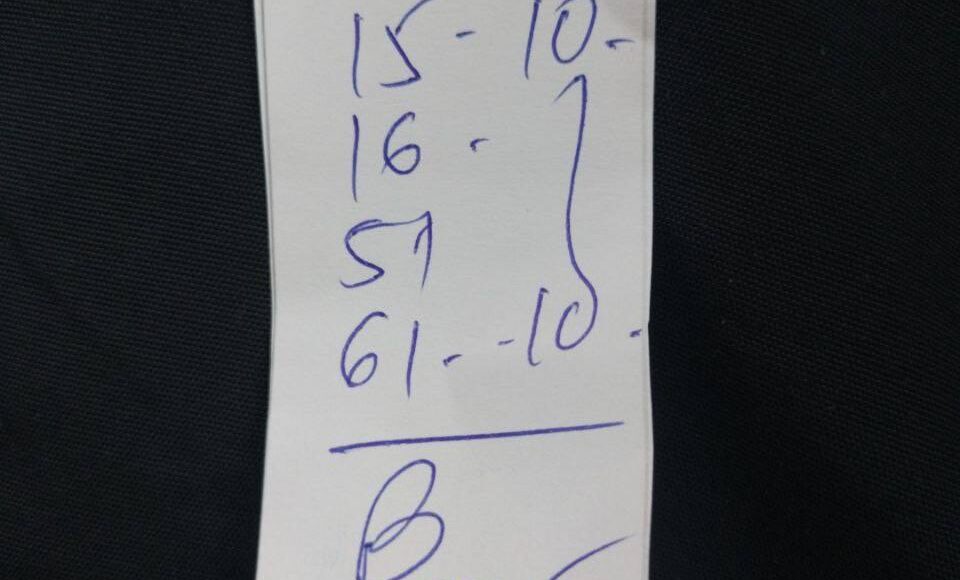 15 - 10.
16 .
51
61. - 10.
B